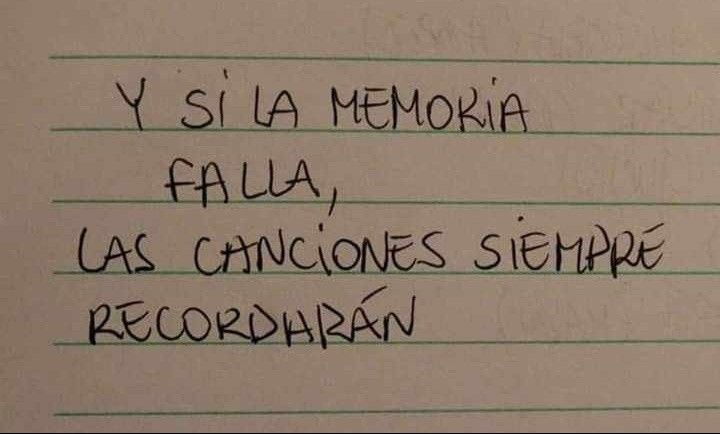 Y Si LA MEMORiA
FALLA,
LAS CANCiONES SiEMPRE
RECORDARÁN